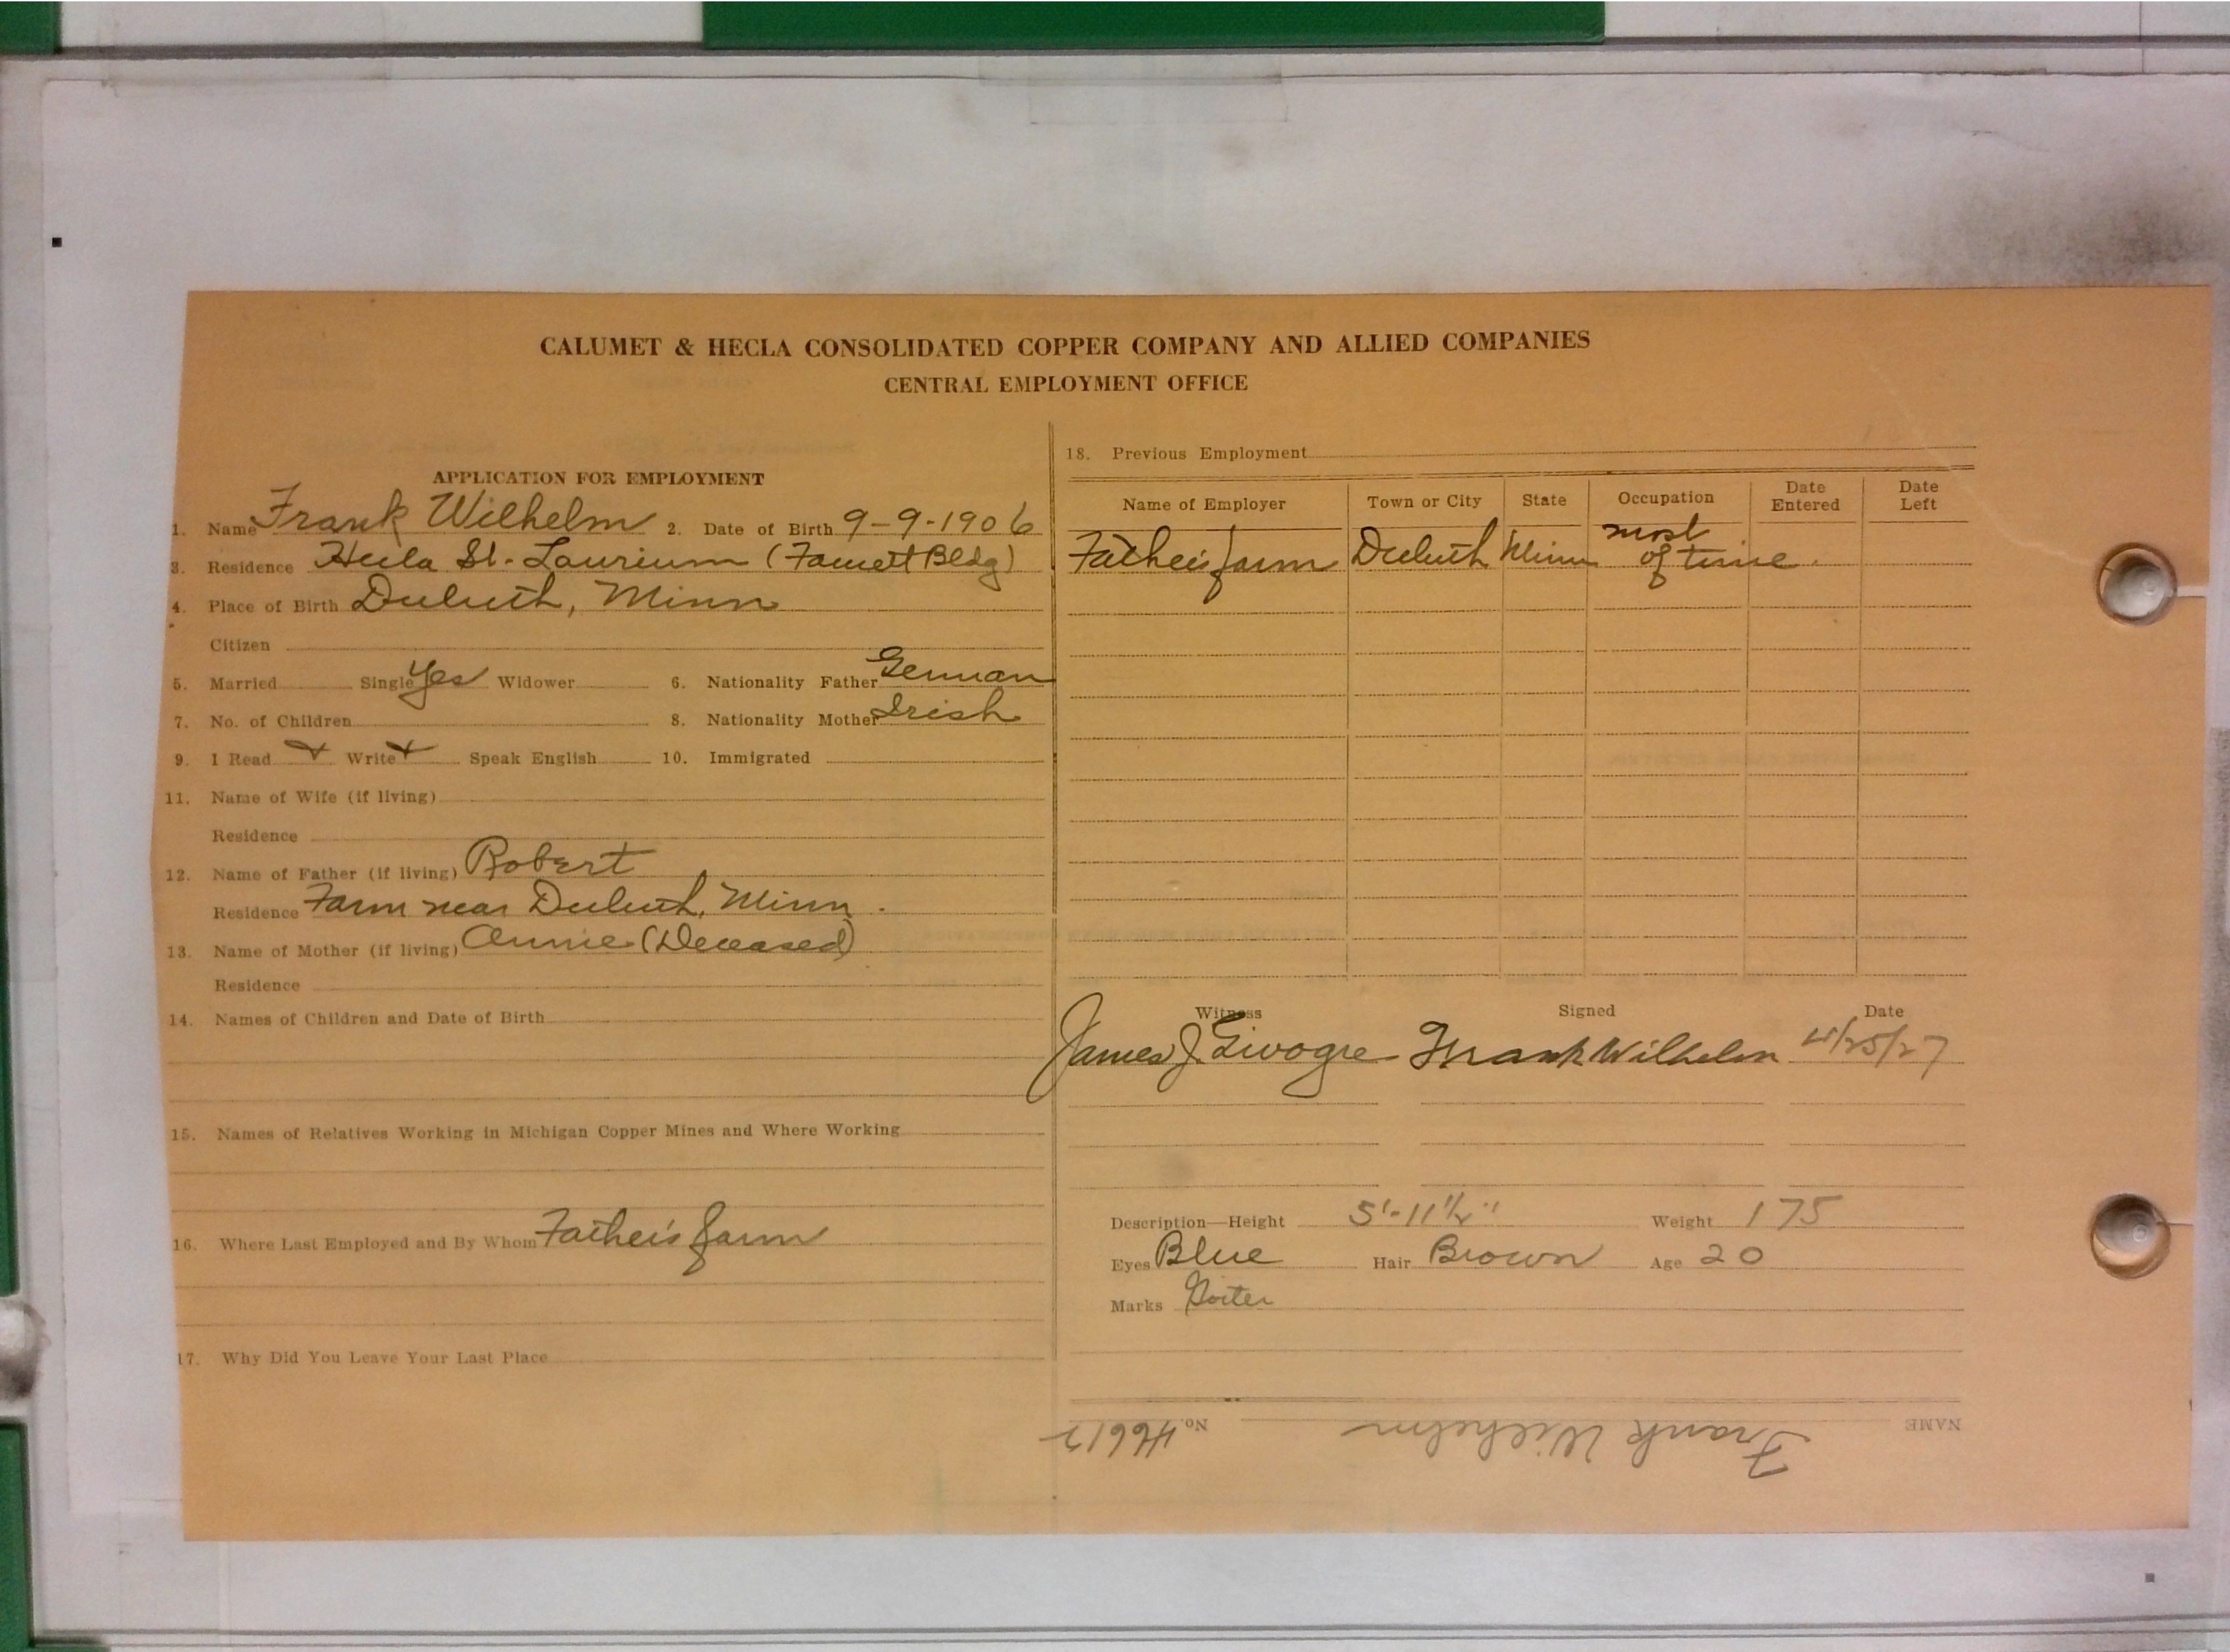 CALUMET & HECLA CONSOLIDATED COPPER COMPANY AND ALLIED COMPANIES
CENTRAL EMPLOYMENT OFFICE
APPLICATION FOR EMPLOYMENT
1. Name Frank Wilhelm 2. Date of Birth 9-9-1906
3. Residence Hecla St. Laurium (Fawett Bldg)
4. Place of Birth Duluth, Minn
Citizen
5. Married Single Yes Widower 6. Nationality Father German
7. No. of Children 8. Nationality Mother Irish
9. I Read Write Speak English 10. Immigrated
11. Name of Wife (if living)
Residence
12. Name of Father (if living) Robert
Residence Farm near Duluth, Minn.
13. Name of Mother (if living) Annie (Deceased)
Residence
14. Names of Children and Date of Birth
15. Names of Relatives Working in Michigan Copper Mines and Where Working
16. Where Last Employed and By Whom Father's farm
17. Why Did You Leave Your Last Place
18. Previous Employment
Name of Employer Town or City State Occupation Date Entered Date Left
Father's farm Duluth Minn most of time.
Witness Signed Date
James J. Frank Wilhelm 4/25/27
Description—Height 5'-11½" Weight 175
Eyes Blue Hair Brown Age 20
Marks Goiter
NAME Frank Wilhelm No. 46612